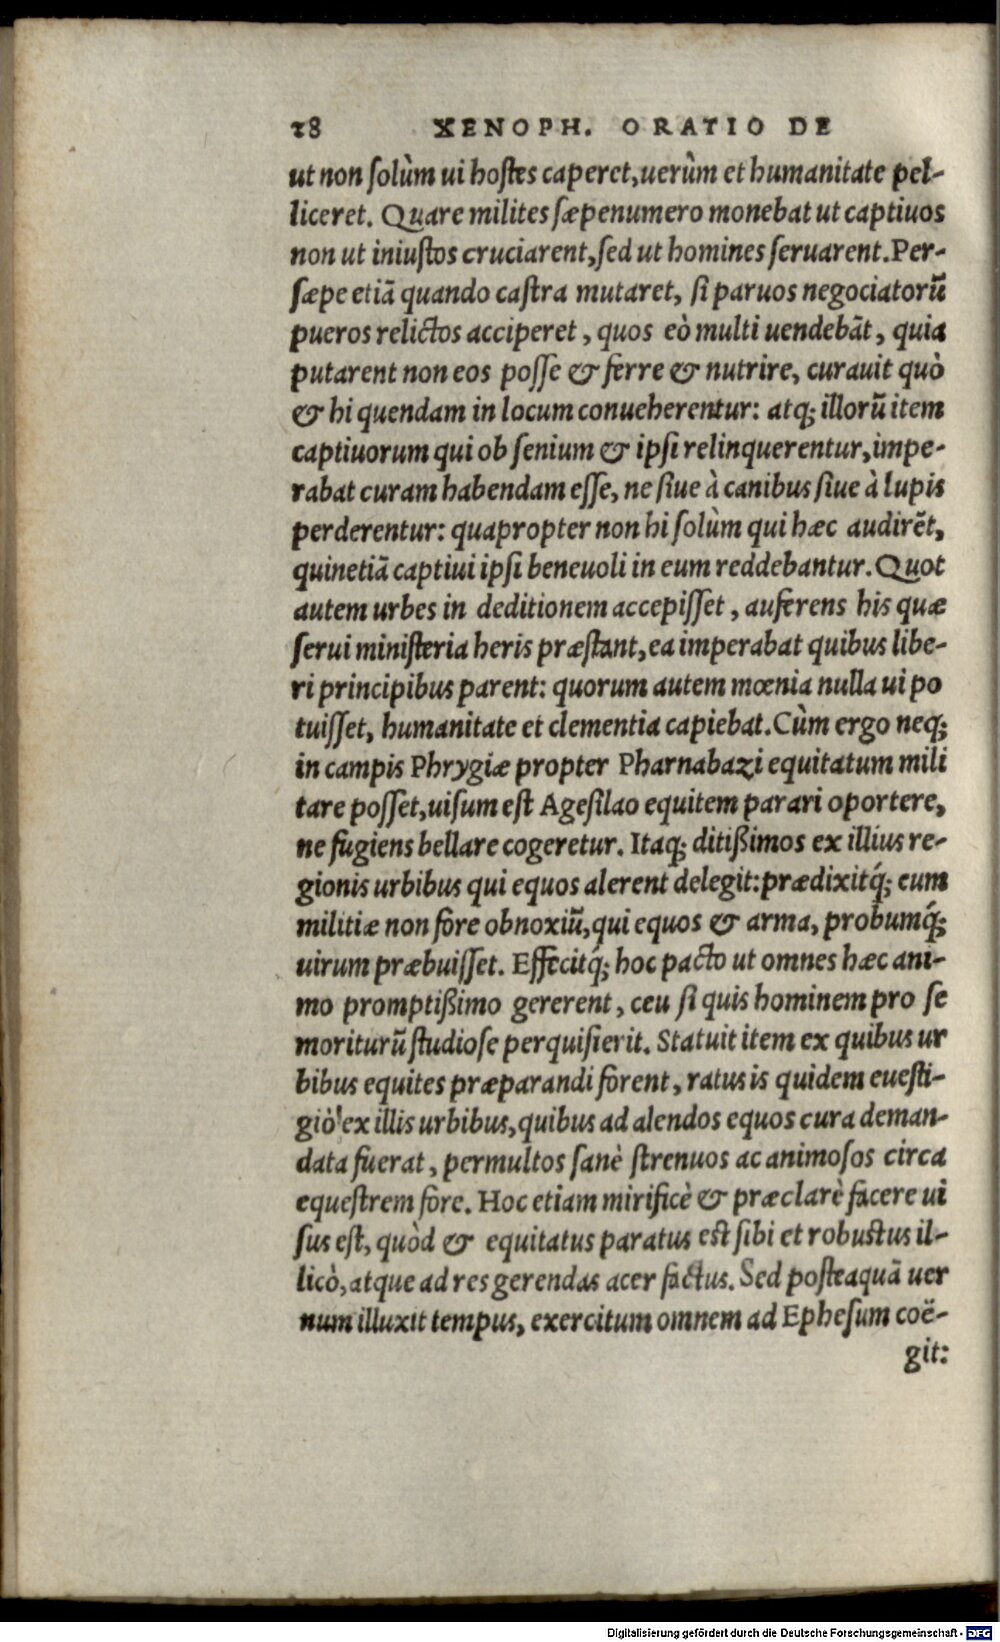 18 XENOPH. ORATIO DE
ut non ſolùm ui hoſtes caperet,uerùm et humanitate pel-
liceret. Quare milites ſæpenumero monebat ut captiuos
non ut iniuſtos cruciarent,ſed ut homines ſeruarent.Per-
ſæpe etiã quando caſtra mutaret, ſi paruos negociatorũ
pueros relictos acciperet , quos eò multi uendebãt, quia
putarent non eos poſſe & ferre & nutrire, curauit quò
& hi quendam in locum conueherentur: atq; illorũ item
captiuorum qui ob ſenium & ipſi relinquerentur,impe-
rabat curam habendam eſſe, ne ſiue à canibus ſiue à lupis
perderentur: quapropter non hi ſolùm qui hæc audirẽt,
quinetiã captiui ipſi beneuoli in eum reddebantur. Quot
autem urbes in deditionem accepiſſet , auferens his quæ
ſerui miniſteria heris præſtant,ea imperabat quibus libe-
ri principibus parent: quorum autem mœnia nulla ui po
tuiſſet, humanitate et clementia capiebat.Cùm ergo neq;
in campis Phrygiæ propter Pharnabazi equitatum mili
tare poſſet,uiſum eſt Ageſilao equitem parari oportere,
ne fugiens bellare cogeretur. Itaq; ditißimos ex illius re-
gionis urbibus qui equos alerent delegit:prædixitq́; eum
militiæ non fore obnoxiũ,qui equos & arma, probumq́;
uirum præbuiſſet. Effecitq́; hoc pacto ut omnes hæc ani-
mo promptißimo gererent , ceu ſi quis hominem pro ſe
moriturũ ſtudioſe perquiſierit. Statuit item ex quibus ur
bibus equites præparandi forent , ratus is quidem eueſti-
giò ex illis urbibus,quibus ad alendos equos cura deman-
data fuerat , permultos ſanè ſtrenuos ac animoſos circa
equeſtrem fore. Hoc etiam mirificè & præclarè facere ui
ſus eſt, quòd & equitatus paratus eſt ſibi et robuſtus il-
licò,atque ad res gerendas acer factus. Sed poſteaquã uer
num illuxit tempus, exercitum omnem ad Epheſum coë-
git:
Digitalisierung gefördert durch die Deutsche Forschungsgemeinschaft - DFG